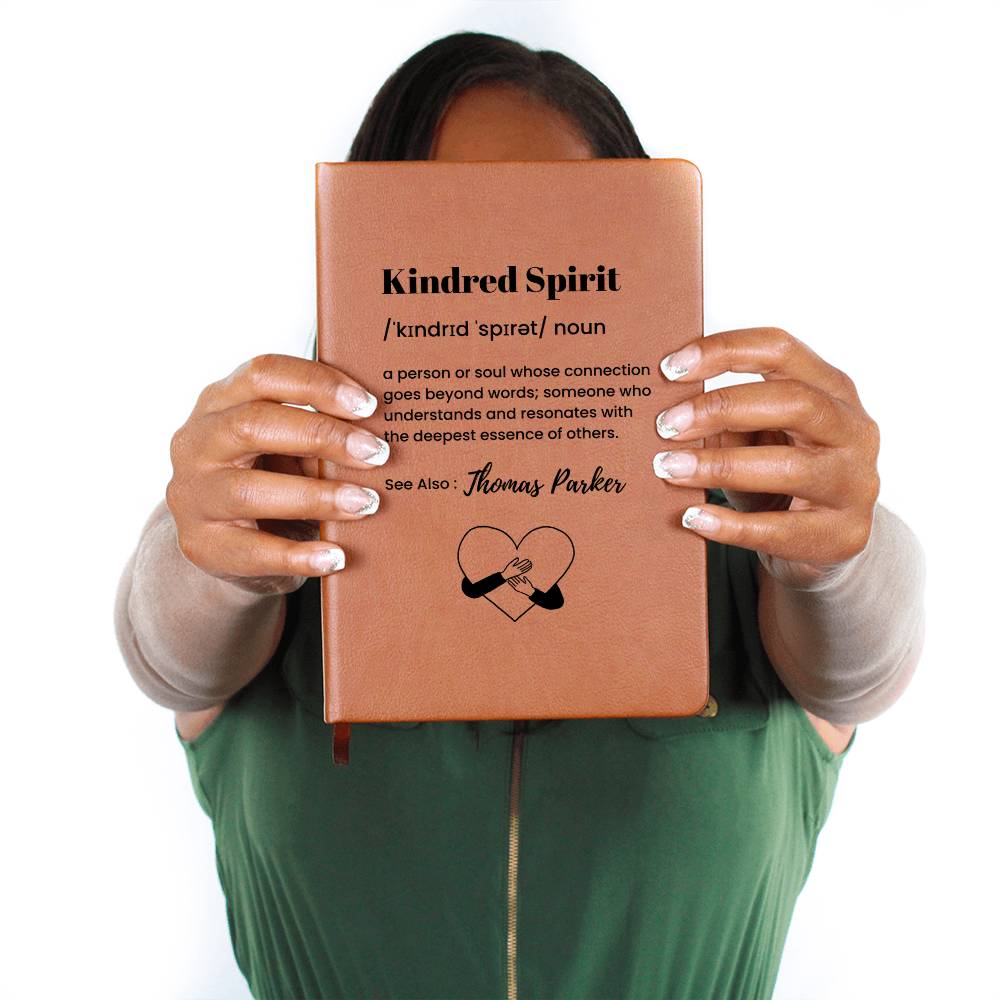 Kindred Spirit
/ˈkɪndrɪd ˈspɪrət/ noun
a person or soul whose connection
goes beyond words; someone who
understands and resonates with
the deepest essence of others.
See Also : Thomas Parker